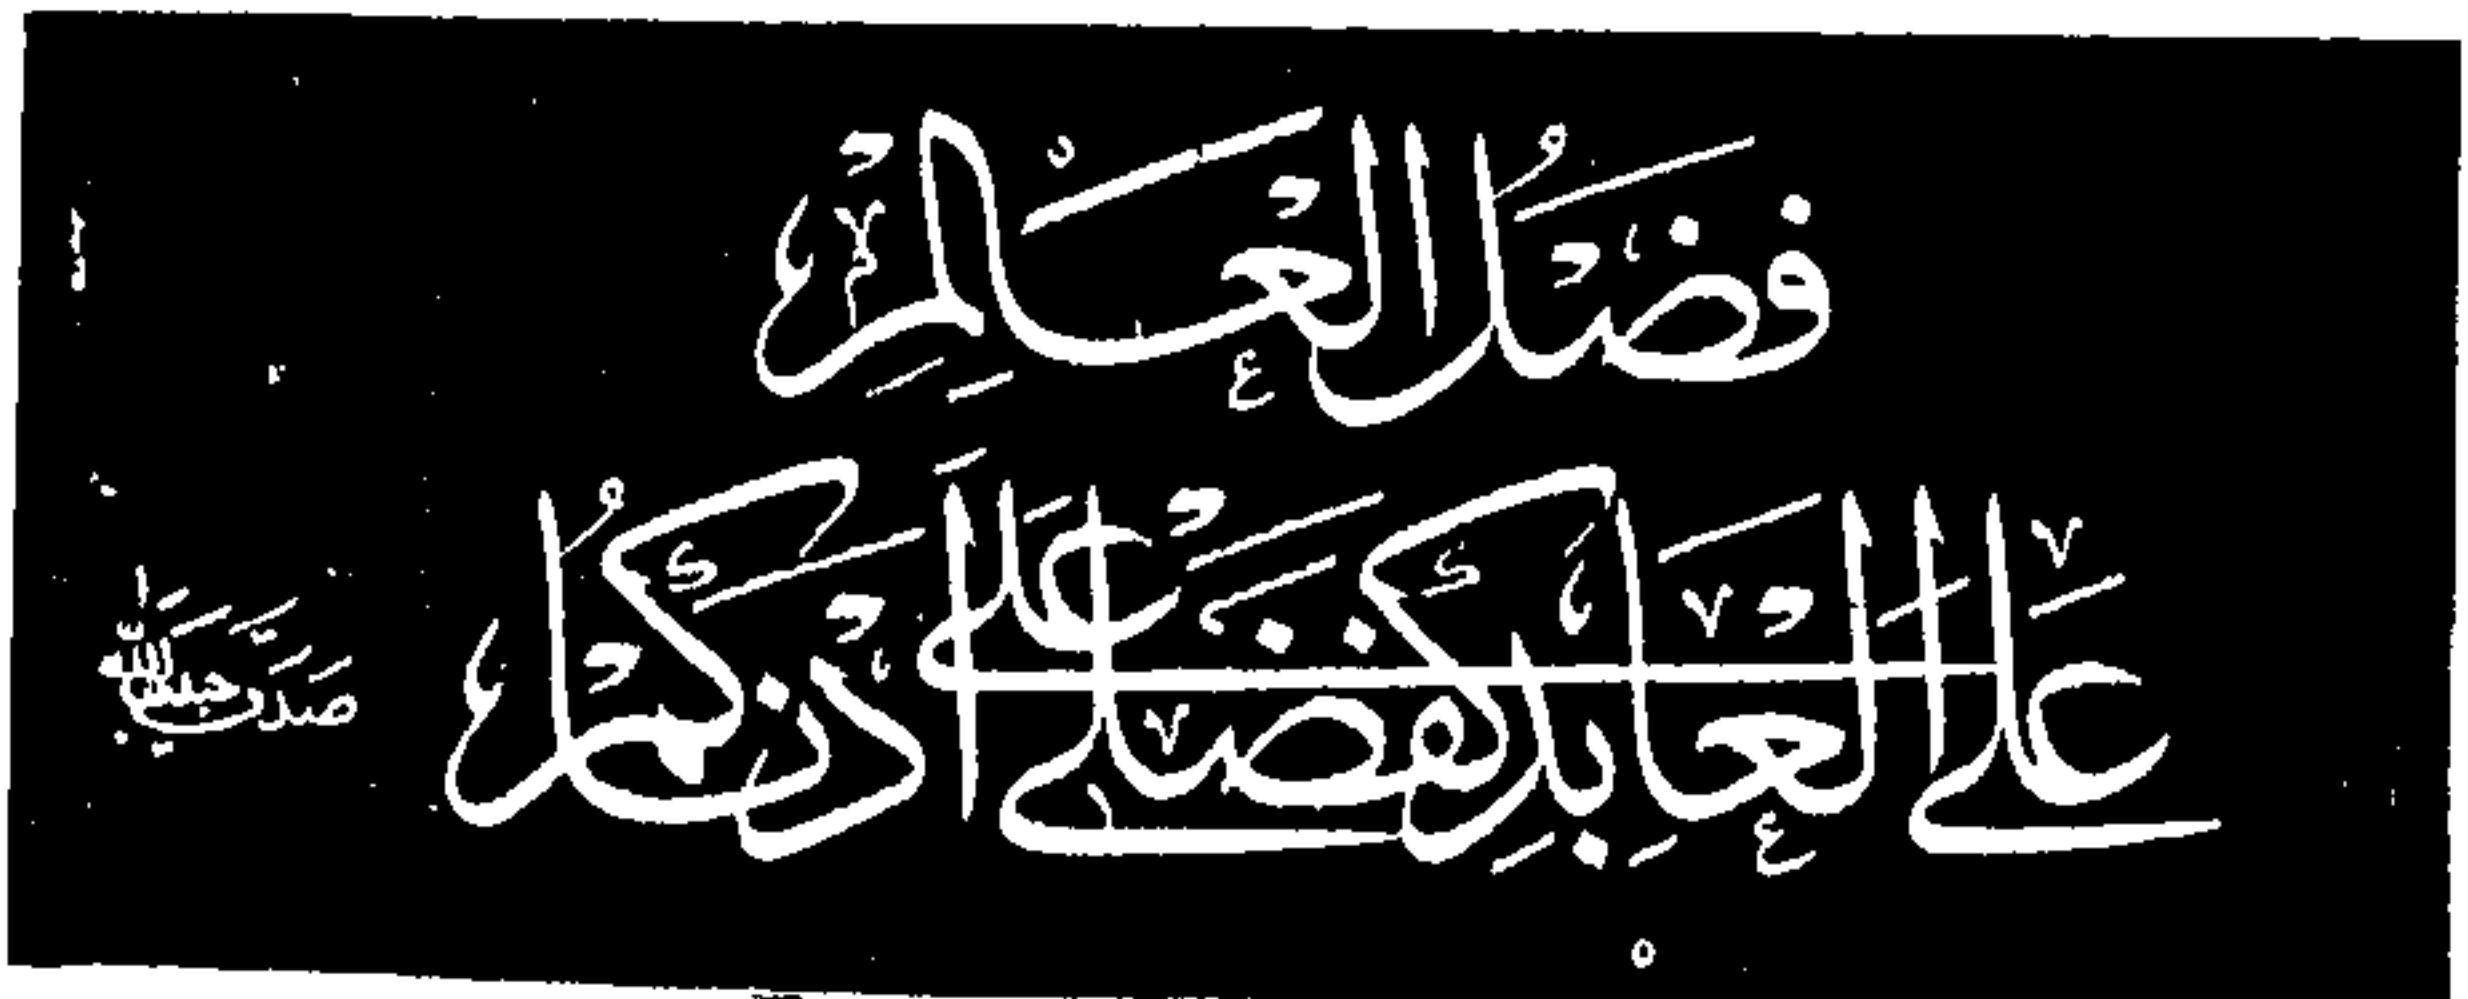 فضل العالم
على العابد كفضلي على ادناكم
صدق حبيب الله